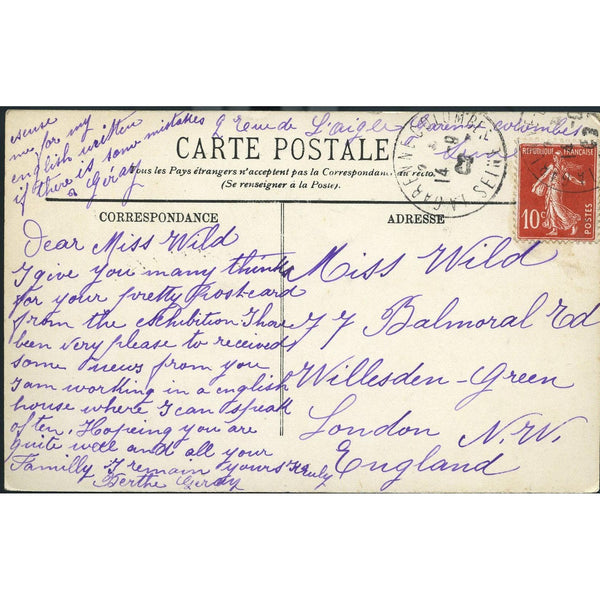 excuse
me for my
english written
if there is some mistakes
B Géray
2 rue de L'aigle Garenne Colombes
Seine
CARTE POSTALE
Tous les Pays étrangers n'acceptent pas la Correspondance au recto.
(Se renseigner à la Poste).
LA GARENNE-COLOMBES
14 - 9
8
REPUBLIQUE FRANCAISE
10c
POSTES
CORRESPONDANCE
Dear Miss Wild
I give you many thinks
for your pretty post-card
from the exhibition I hav
been very please to received
some news from you
I am working in a english
house where I can speak
often. Hopeing you are
quite well and all your
Familly I remain yours truly
Berthe Geray
ADRESSE
Miss Wild
77 Balmoral Rd
Willesden-Green
London N.W.
England